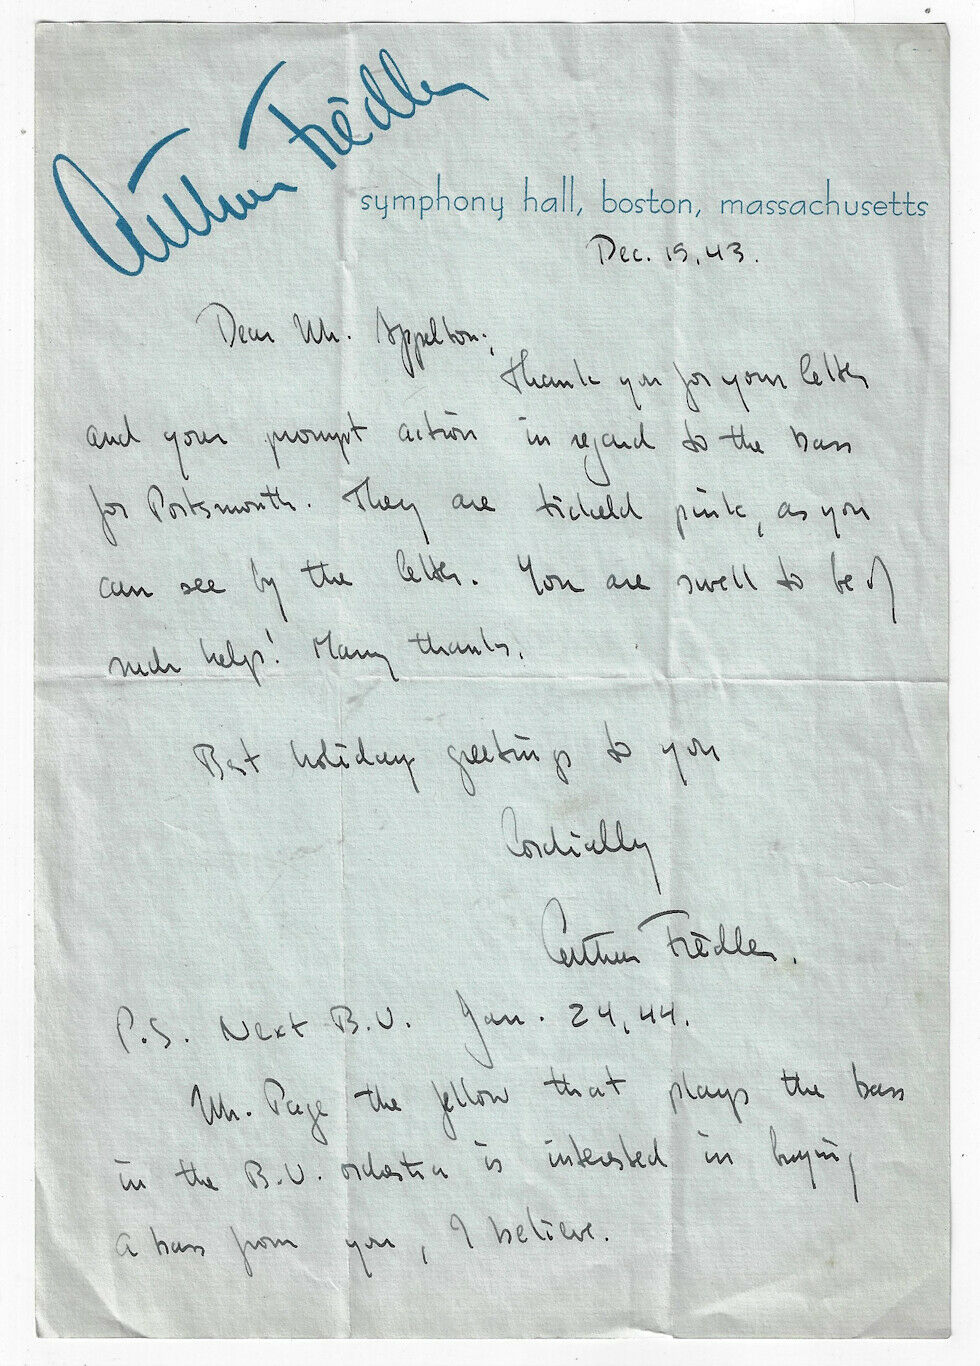 Arthur Fiedler
symphony hall, boston, massachusetts
Dec. 15, 43.
Dear Mr. Appelton:,
Thank you for your letter
and your prompt action in regard to the bass
for Portsmouth. They are tickeld pink, as you
can see by the letter. You are swell to be of
such help! Many thanks.
Best holiday greetings to you
Cordially
Arthur Fiedler.
P.S. Next B.U. Jan. 24, 44.
Mr. Page the fellow that plays the bass
in the B.U. orchestra is interested in buying
a bass from you, I believe.